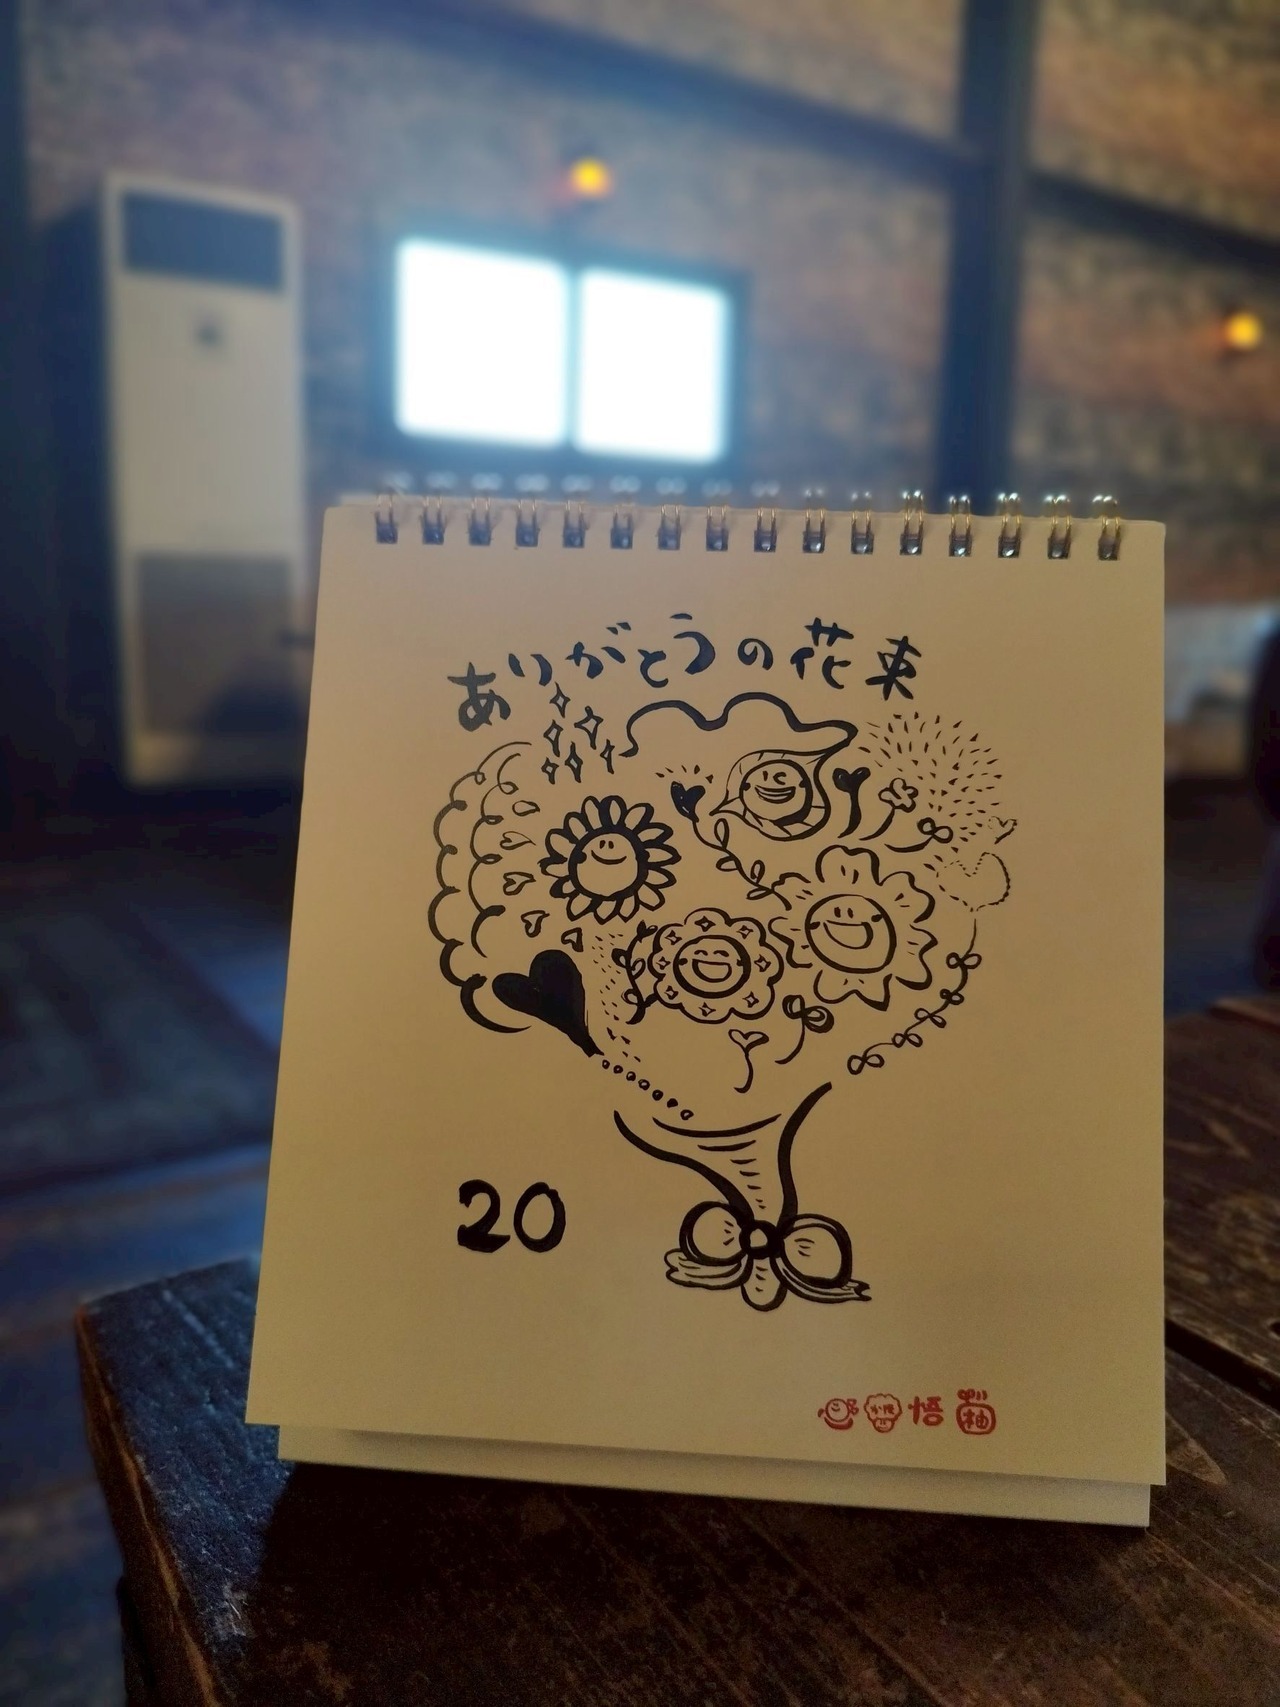 ありがとうの花束
20
悟 柚